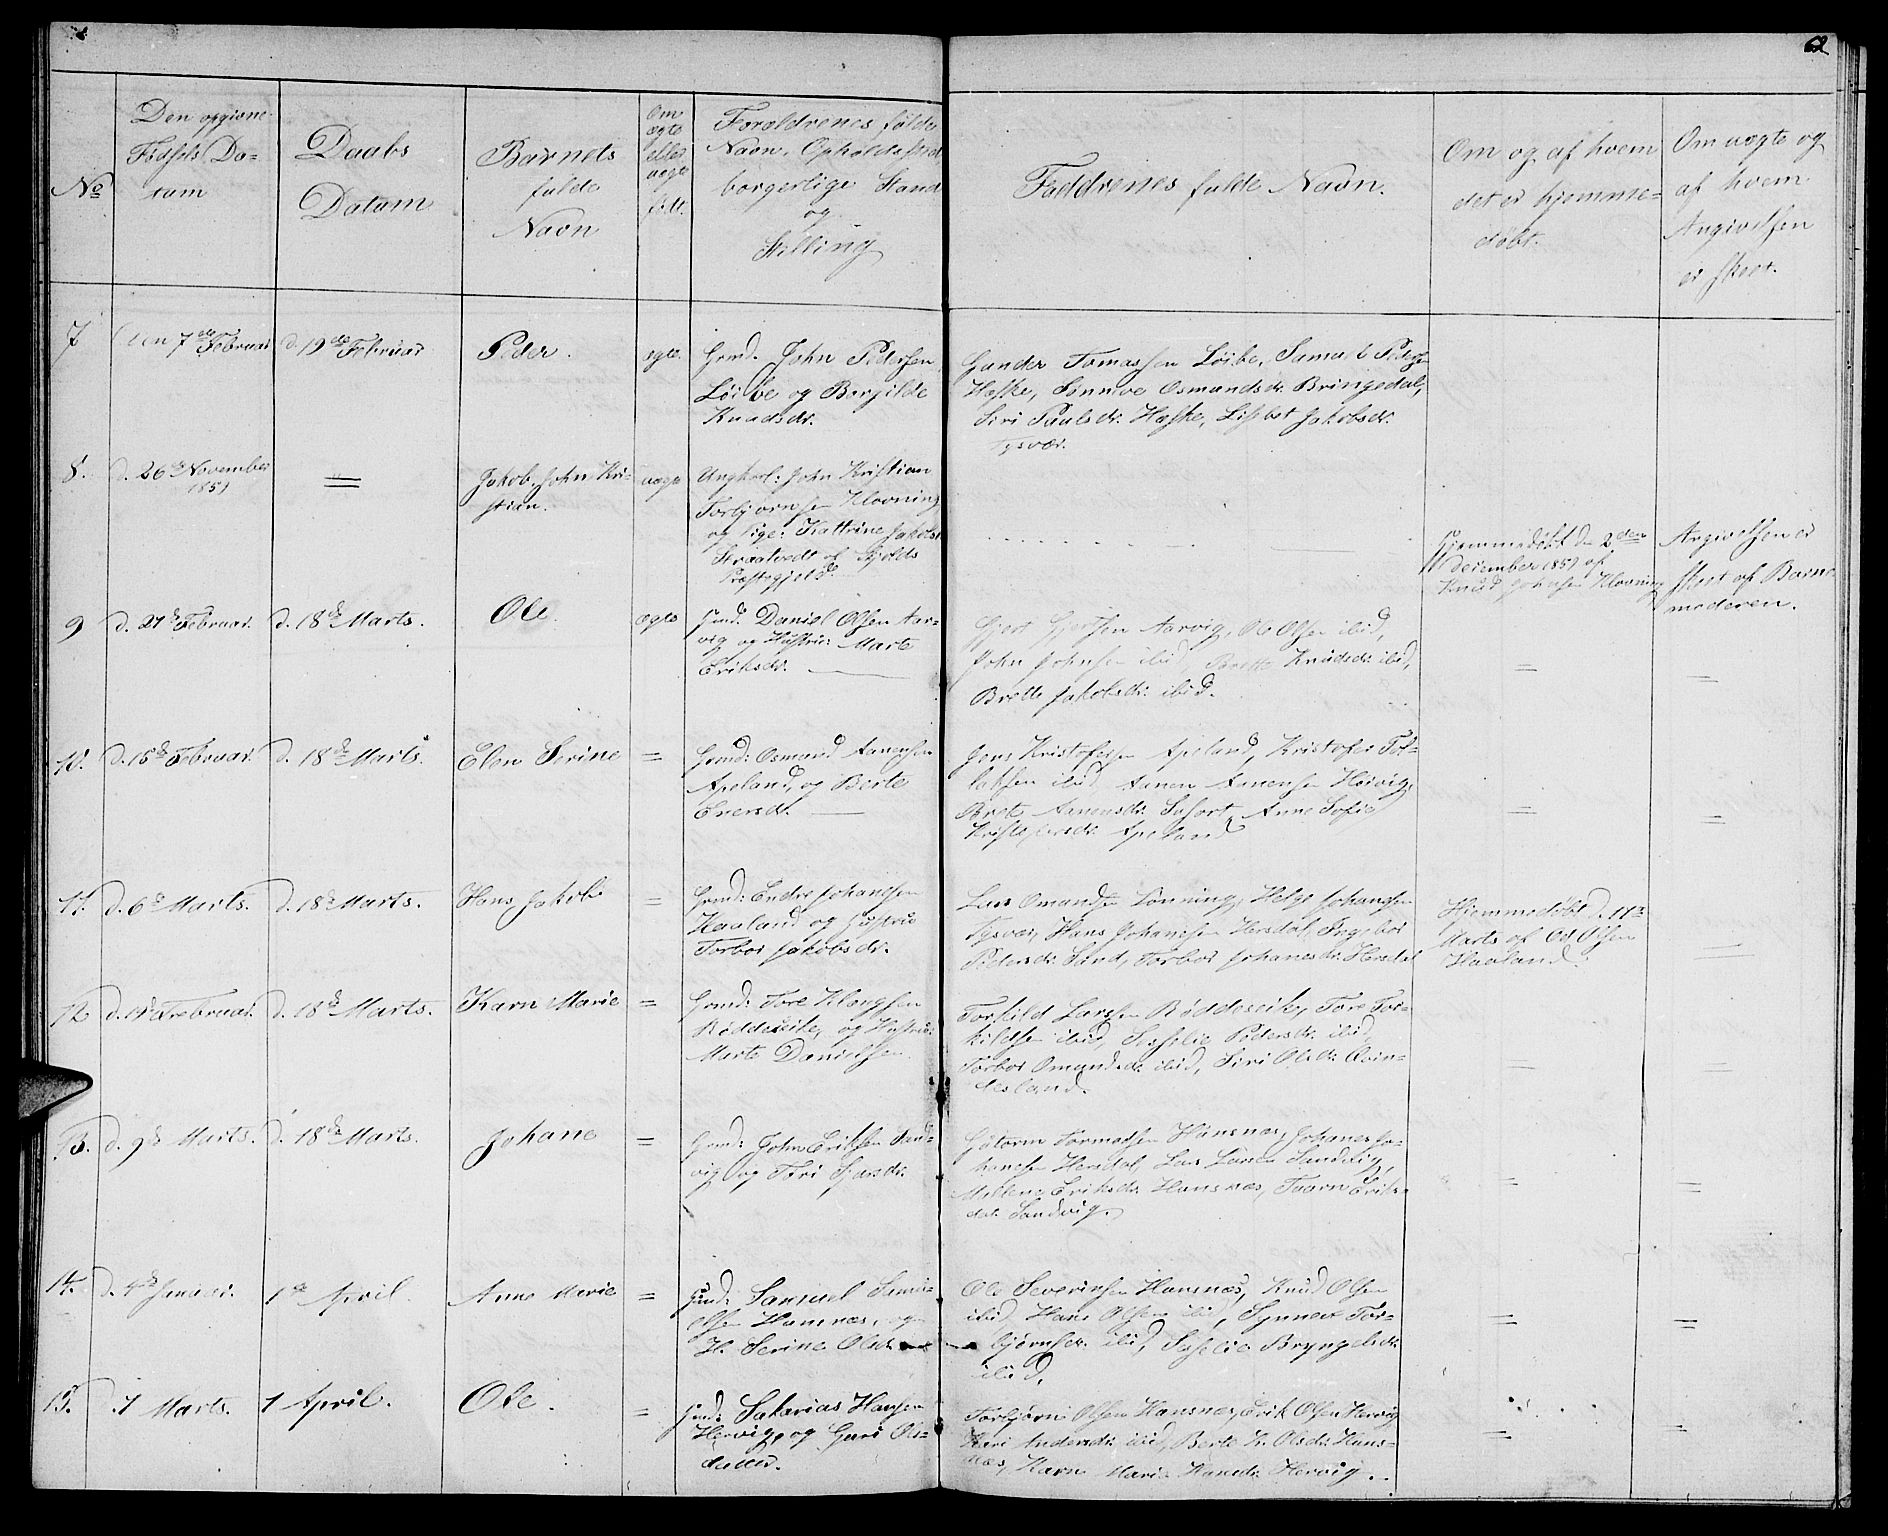 62
No
Den opgivne
Fødsels Da-
tum
Daabs
Datum
Barnets
fulde
Navn
Om
ægte
eller
uægte
født.
Forældrenes fulde
Navn, Opholdssted
borgerlige Stand
og
Stilling
Faddrenes fulde Navn.
Om og af hvem
det er hjemme-
døbt.
Om uægte og
af hvem
Angivelsen
er skeet.
7
den 7de Februar
d. 19de Februar
Peder.
ægte.
Grmd. John Pedersen
Løibe og Borgilde
Knudsdr.
Gunder Tomassen Løibe, Samuel Peders
Haske, Sønnive Osmundsdr. Bringedal,
Siri Paulsdr. Haske, Lisbet Jakobsdr.
Tysvær.
8.
d. 26de November
1851
=
Jakob John Kri-
stian.
uægte
Ungkarl: John Kristian
Torbjørnsen Klovning
og Pige: Kattrine Jakobs
Straatvedt af Fjelds
Præstegjeld.
Hjemmedøbt den 2den
December 1851 af
Knud Johnsen Klovning
Angivelsen er
skeet af Barne
moderen.
9
d. 27de Februar.
d. 18de Marts.
Ole.
ægte
Grmd: Daniel Olsen Aar-
vig og Hustrue Marte
Eriksdr.
Gjert Gjertsen Aarvig, Ole Olsen ibid,
John Johnsen ibid, Brette Knudsdr. ibid,
Brette Jakobsdr. ibid.
=
=
10.
d. 15de Februar.
d. 18de Marts.
Elen Serine
=
Grmd: Osmund Aanensen
Apeland, og Berte
Enersdr.
Jens Kristofersen Apeland, Kristofer Tol-
laksen ibid, Aanen Aanensen Hervig,
Berte Aanensdr. , Anne Sofie
Kristofersdr. Apeland
=
=
11.
d. 6de Marts.
d. 18de Marts.
Hans Jakob
=
Grmd: Endre Johansen
Haaland og Hustrue
Torbor Jakobsdr.
Lars Omundsen Lønning, Helge Johansen
Tysvær, Hans Johansen Hersdal, Ingebor
Pedersdr. Sand, Torbor Johanesdr. Hersdal
Hjemmedøbt d. 11te
Marts af Ole Olsen
Haaland.
=
12
d. Februar.
d. 18de Marts.
Karn Marie
=
Grmd: Tore Klongsen
Røddeseike, og Hustrue:
Marte Danielsen.
Torkild Larsen Røddeseike, Tore Tor-
kildsen ibid, Sisselie Pedersdr. ibid,
Torbor Omundsdr. ibid, Siri Olsdr. Qvin-
nesland.
=
=
13.
d. 9de Marts.
d. 18de Marts.
Johane
=
Grmd: John Eriksen Sand-
vig og Tori Larsdr.
Gutorm Tormodsen Hansnæs, Johanes Jo-
hansen Hersdal, Lars Larsen Sandvig,
Mallene Eriksdr. Hansnæs, Taarn Eriks-
datr. Sandvig.
=
=
14.
d. 4de Januar.
1de April.
Anne Marie
=
Grmd: Samuel Samu-
elsen Hansnæs, og
H. Serine Olsdr.
Ole Severinsen Hansnæs, Knud Olsen
ibid, Hans Olsen ibid, Synneve Tor-
bjørnsdr. ibid, Siselie Bryngelsdr.
ibid,
=
=
15.
1 Marts.
1 April.
Ole.
=
Grmd: Sakarias Hansen
Hervig, og Guri Ols-
datter.
Torbjørn Olsen Hansnæs, Erik Olsen Hervig
Kari Andersdr. ibid, Berte K. Olsdr. Hans-
næs, Karn Maria Hansdr. Hervig.
=
=